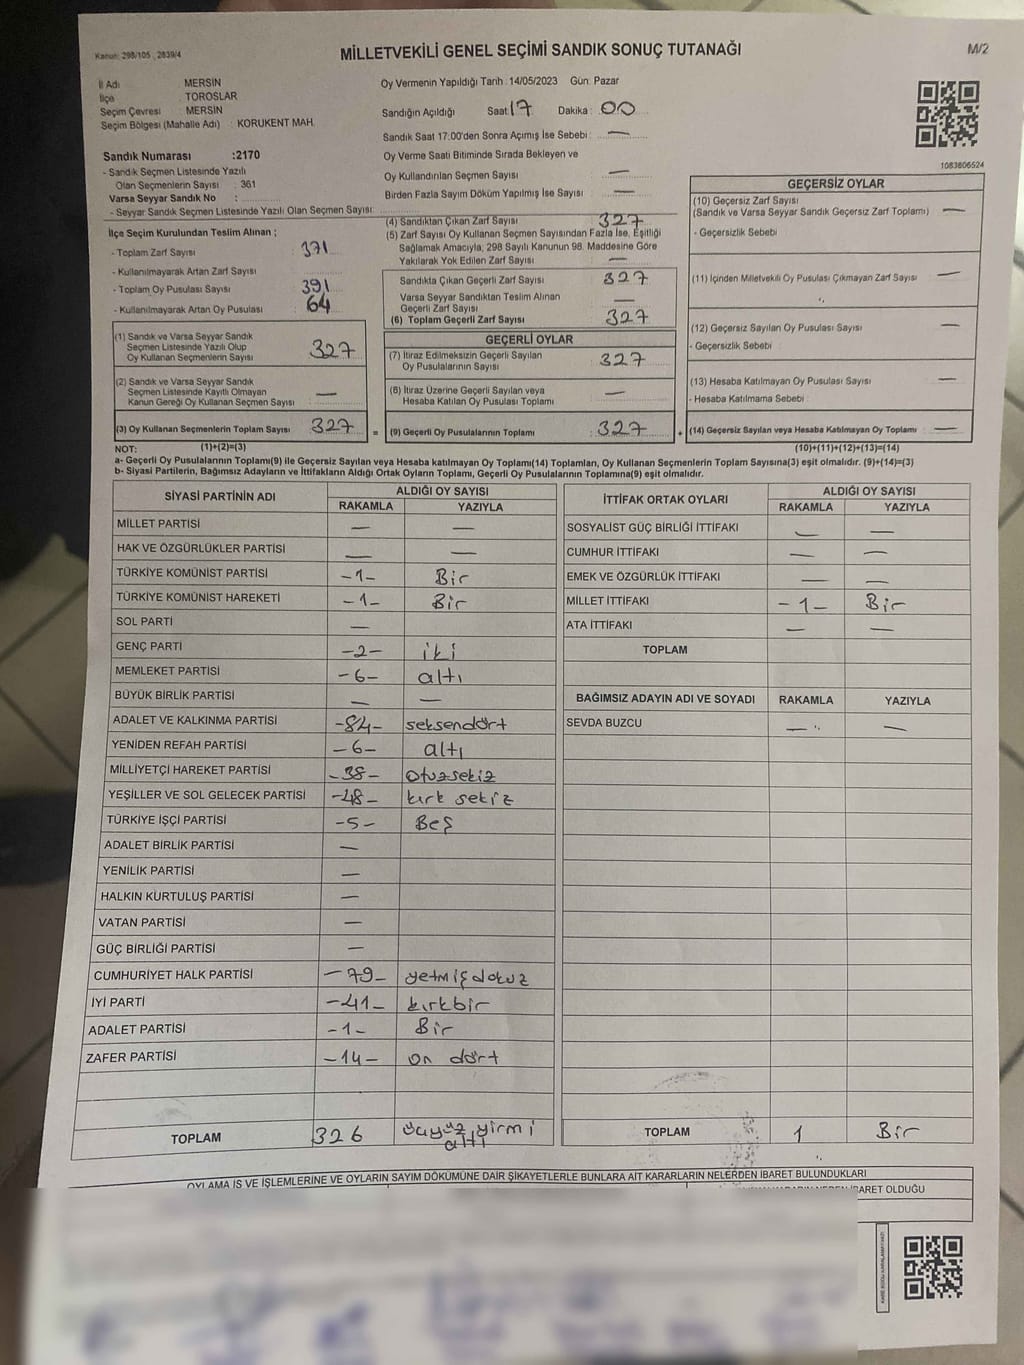 Kanun: 298/105 , 2839/4
MİLLETVEKİLİ GENEL SEÇİMİ SANDIK SONUÇ TUTANAĞI
M/2
İl Adı MERSİN
İlçe TOROSLAR
Seçim Çevresi MERSİN
Seçim Bölgesi (Mahalle Adı) : KORUKENT MAH.
Oy Vermenin Yapıldığı Tarih : 14/05/2023 Gün: Pazar
Sandığın Açıldığı Saat 17 Dakika : 00
Sandık Saat 17:00'den Sonra Açımış İse Sebebi : —
Oy Verme Saati Bitiminde Sırada Bekleyen ve
Oy Kullandırılan Seçmen Sayısı —
Birden Fazla Sayım Döküm Yapılmış İse Sayısı —
1083806524
Sandık Numarası :2170
- Sandık Seçmen Listesinde Yazılı
Olan Seçmenlerin Sayısı : 361
Varsa Seyyar Sandık No :
- Seyyar Sandık Seçmen Listesinde Yazılı Olan Seçmen Sayısı:
İlçe Seçim Kurulundan Teslim Alınan ;
- Toplam Zarf Sayısı : 371
- Kullanılmayarak Artan Zarf Sayısı
- Toplam Oy Pusulası Sayısı : 391
- Kullanılmayarak Artan Oy Pusulası : 64
(1) Sandık ve Varsa Seyyar Sandık
Seçmen Listesinde Yazılı Olup
Oy Kullanan Seçmenlerin Sayısı : 327
(2) Sandık ve Varsa Seyyar Sandık
Seçmen Listesinde Kayıtlı Olmayan
Kanun Gereği Oy Kullanan Seçmen Sayısı : —
(3) Oy Kullanan Seçmenlerin Toplam Sayısı : 327
(4) Sandıktan Çıkan Zarf Sayısı 327
(5) Zarf Sayısı Oy Kullanan Seçmen Sayısından Fazla İse, Eşitliği
Sağlamak Amacıyla, 298 Sayılı Kanunun 98. Maddesine Göre
Yakılarak Yok Edilen Zarf Sayısı —
Sandıkta Çıkan Geçerli Zarf Sayısı 327
Varsa Seyyar Sandıktan Teslim Alınan
Geçerli Zarf Sayısı —
(6) Toplam Geçerli Zarf Sayısı 327
GEÇERLİ OYLAR
(7) İtiraz Edilmeksizin Geçerli Sayılan
Oy Pusulalarının Sayısı 327
(8) İtiraz Üzerine Geçerli Sayılan veya
Hesaba Katılan Oy Pusulası Toplamı —
= (9) Geçerli Oy Pusulalarının Toplamı 327
GEÇERSİZ OYLAR
(10) Geçersiz Zarf Sayısı
(Sandık ve Varsa Seyyar Sandık Geçersiz Zarf Toplamı) —
- Geçersizlik Sebebi :
(11) İçinden Milletvekili Oy Pusulası Çıkmayan Zarf Sayısı —
(12) Geçersiz Sayılan Oy Pusulası Sayısı —
- Geçersizlik Sebebi :
(13) Hesaba Katılmayan Oy Pusulası Sayısı —
- Hesaba Katılmama Sebebi :
+ (14) Geçersiz Sayılan veya Hesaba Katılmayan Oy Toplamı —
NOT: (1)+(2)=(3) (10)+(11)+(12)+(13)=(14)
a- Geçerli Oy Pusulalarının Toplamı(9) ile Geçersiz Sayılan veya Hesaba katılmayan Oy Toplamı(14) Toplamları, Oy Kullanan Seçmenlerin Toplam Sayısına(3) eşit olmalıdır. (9)+(14)=(3)
b- Siyasi Partilerin, Bağımsız Adayların ve İttifakların Aldığı Ortak Oyların Toplamı, Geçerli Oy Pusulalarının Toplamına(9) eşit olmalıdır.
SİYASİ PARTİNİN ADI ALDIĞI OY SAYISI
RAKAMLA YAZIYLA
MİLLET PARTİSİ — —
HAK VE ÖZGÜRLÜKLER PARTİSİ — —
TÜRKİYE KOMÜNİST PARTİSİ -1- Bir
TÜRKİYE KOMÜNİST HAREKETİ -1- Bir
SOL PARTİ —
GENÇ PARTİ -2- iki
MEMLEKET PARTİSİ -6- altı
BÜYÜK BİRLİK PARTİSİ — —
ADALET VE KALKINMA PARTİSİ -84- seksendört
YENİDEN REFAH PARTİSİ -6- altı
MİLLİYETÇİ HAREKET PARTİSİ -38- otuzsekiz
YEŞİLLER VE SOL GELECEK PARTİSİ -48- kırk sekiz
TÜRKİYE İŞÇİ PARTİSİ -5- Beş
ADALET BİRLİK PARTİSİ —
YENİLİK PARTİSİ —
HALKIN KURTULUŞ PARTİSİ —
VATAN PARTİSİ —
GÜÇ BİRLİĞİ PARTİSİ —
CUMHURİYET HALK PARTİSİ -79- yetmişdokuz
İYİ PARTİ -41- kırkbir
ADALET PARTİSİ -1- Bir
ZAFER PARTİSİ -14- on dört
TOPLAM 326 yirmi
altı
İTTİFAK ORTAK OYLARI ALDIĞI OY SAYISI
RAKAMLA YAZIYLA
SOSYALİST GÜÇ BİRLİĞİ İTTİFAKI — —
CUMHUR İTTİFAKI — —
EMEK VE ÖZGÜRLÜK İTTİFAKI — —
MİLLET İTTİFAKI -1- Bir
ATA İTTİFAKI — —
TOPLAM
BAĞIMSIZ ADAYIN ADI VE SOYADI RAKAMLA YAZIYLA
SEVDA BUZCU — —
TOPLAM 1 Bir
OYLAMA İŞ VE İŞLEMLERİNE VE OYLARIN SAYIM DÖKÜMÜNE DAİR ŞİKAYETLERLE BUNLARA AİT KARARLARIN NELERDEN İBARET BULUNDUKLARI
OLDUĞU